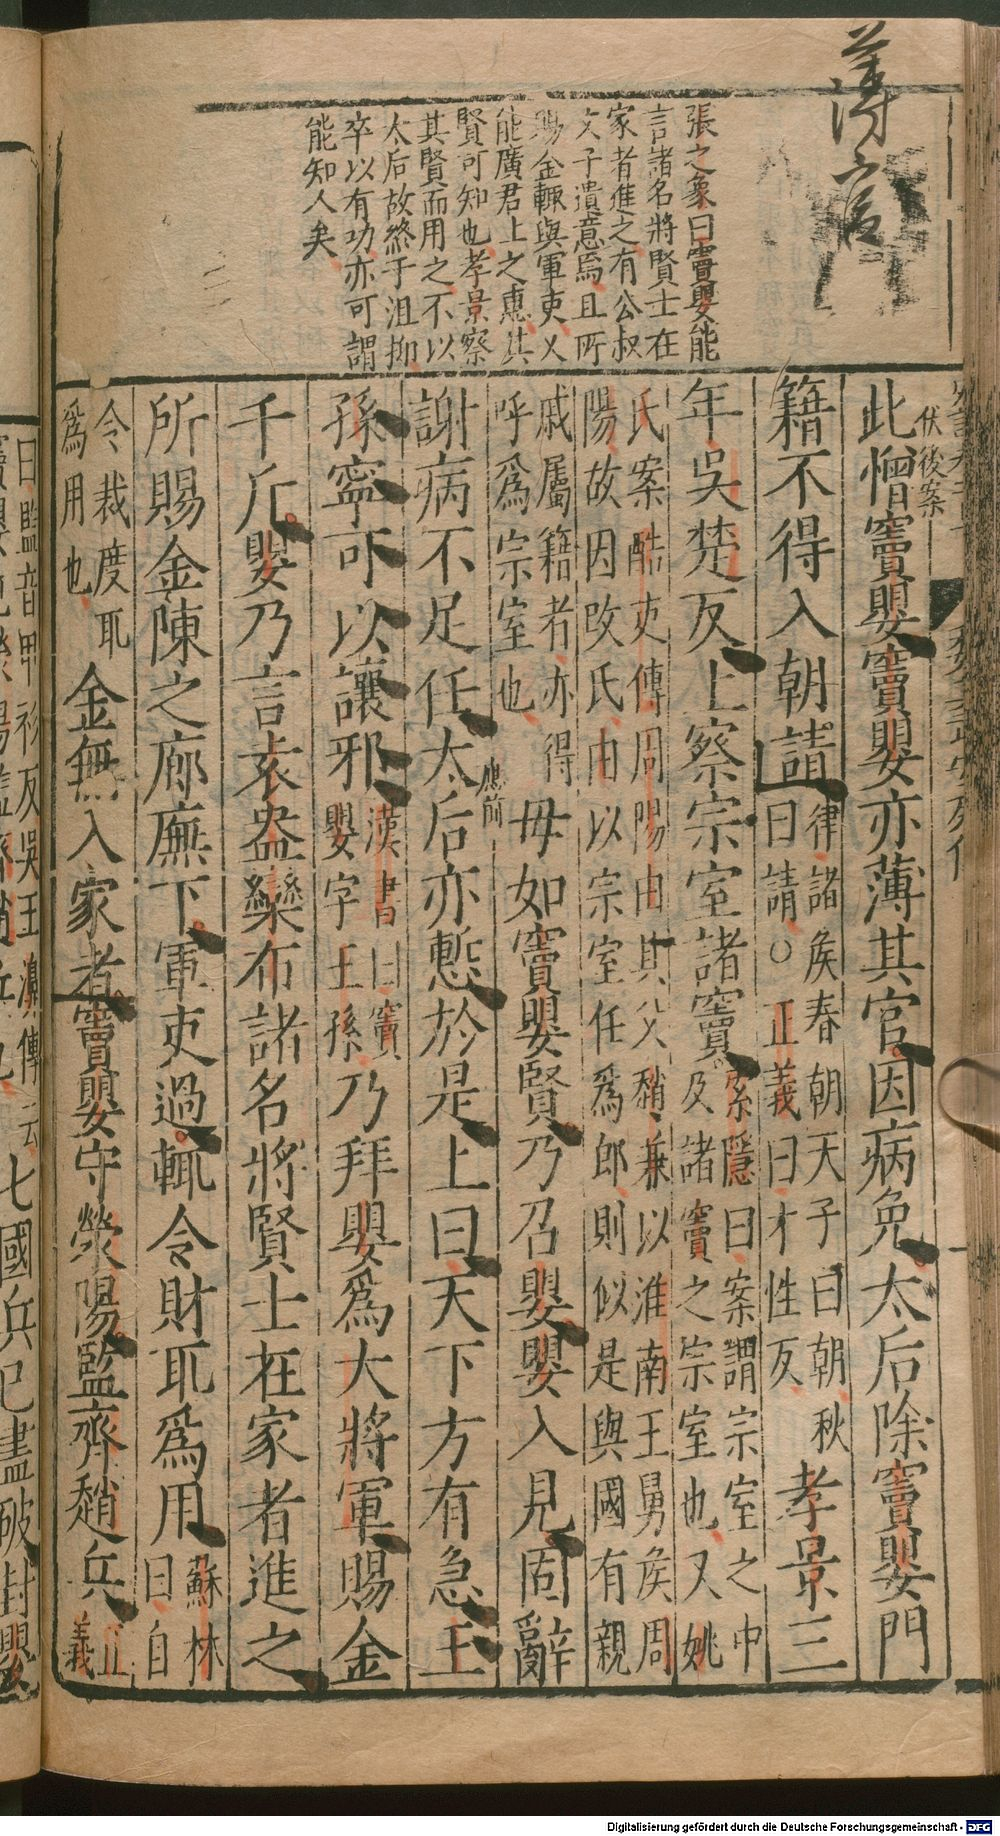 薄官
張之象曰竇嬰能
言諸名將賢士在
家者進之有公叔
文子遺意焉且所
賜金輒與軍吏又
能廣君上之惠其
賢可知也孝景察
其賢而用之不以
太后故終于沮抑
卒以有功亦可謂
能知人矣
伏後案
此憎竇嬰竇嬰亦薄其官因病免太后除竇嬰門
籍不得入朝請律諸侯春朝天子曰朝秋曰請○正義曰才性反孝景三
年吳楚反上察宗室諸竇索隱曰案謂宗室之中及諸竇之宗室也又姚
氏案酷吏傳周陽由其父稍兼以淮南王舅侯周
陽故因改氏由以宗室任爲郎則似是與國有親
戚屬籍者亦得呼爲宗室也毋如竇嬰賢乃召嬰嬰入見固辭
應前
謝病不足任太后亦慙於是上曰天下方有急王
孫寧可以讓邪漢書曰竇嬰字王孫乃拜嬰爲大將軍賜金
千斤嬰乃言袁盎欒布諸名將賢士在家者進之
所賜金陳之廊廡下軍吏過輒令財取爲用蘇林曰自
令裁度取爲用也金無入家者竇嬰守滎陽監齊趙兵正義
曰監音甲衫反吳王濞傳云
七國兵已盡破封嬰
Digitalisierung gefördert durch die Deutsche Forschungsgemeinschaft - DFG